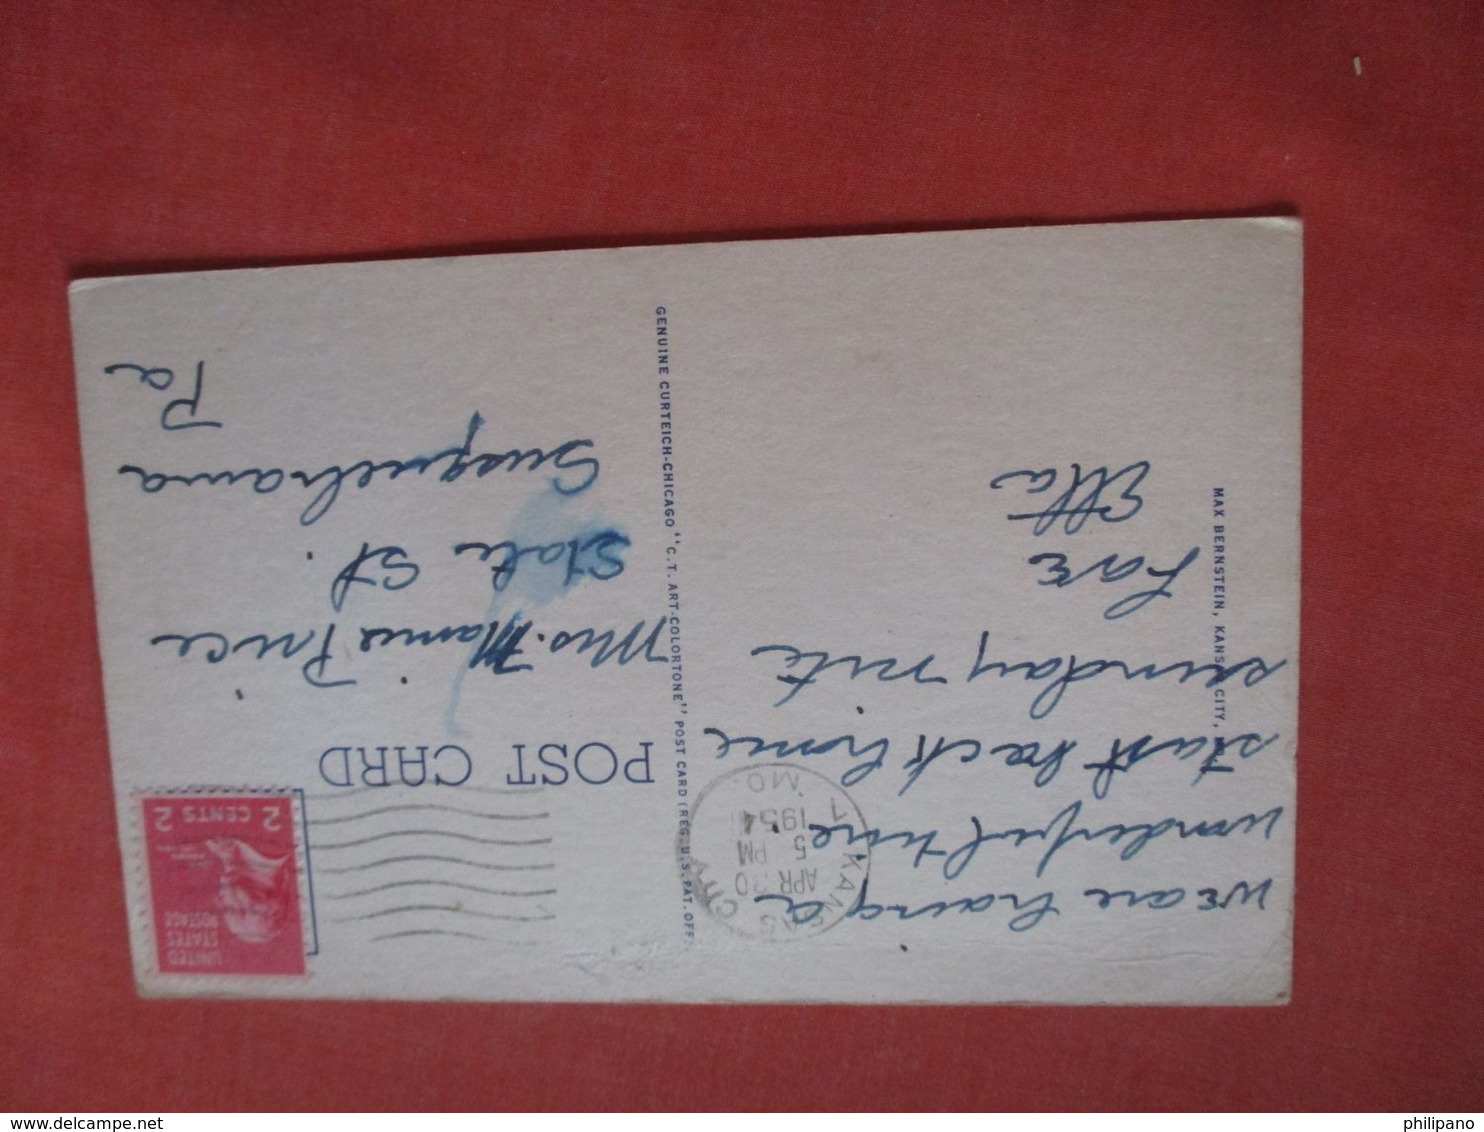 We are having a
wonderful time
start back home
sunday nite
Love
Etta
MAX BERNSTEIN, KANSAS CITY,
GENUINE CURTEICH-CHICAGO "C.T. ART-COLORTONE" POST CARD (REG. U.S. PAT. OFF.
KANSAS CITY 1
APR 30
5 PM
1954
MO.
POST CARD
UNITED
STATES
POSTAGE
2 CENTS 2
Mrs. Mamie Price
State St.
Susquehanna
Pa
philipano
delcampe.net